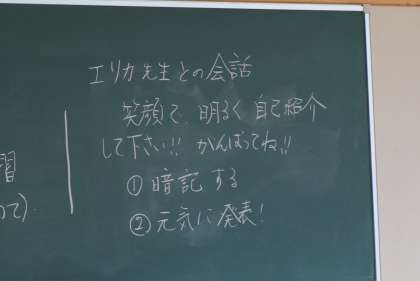 エリカ先生との会話
笑顔で、明るく自己紹介
して下さい!! がんばってね!!
①暗記する
②元気に発表!
習
って).